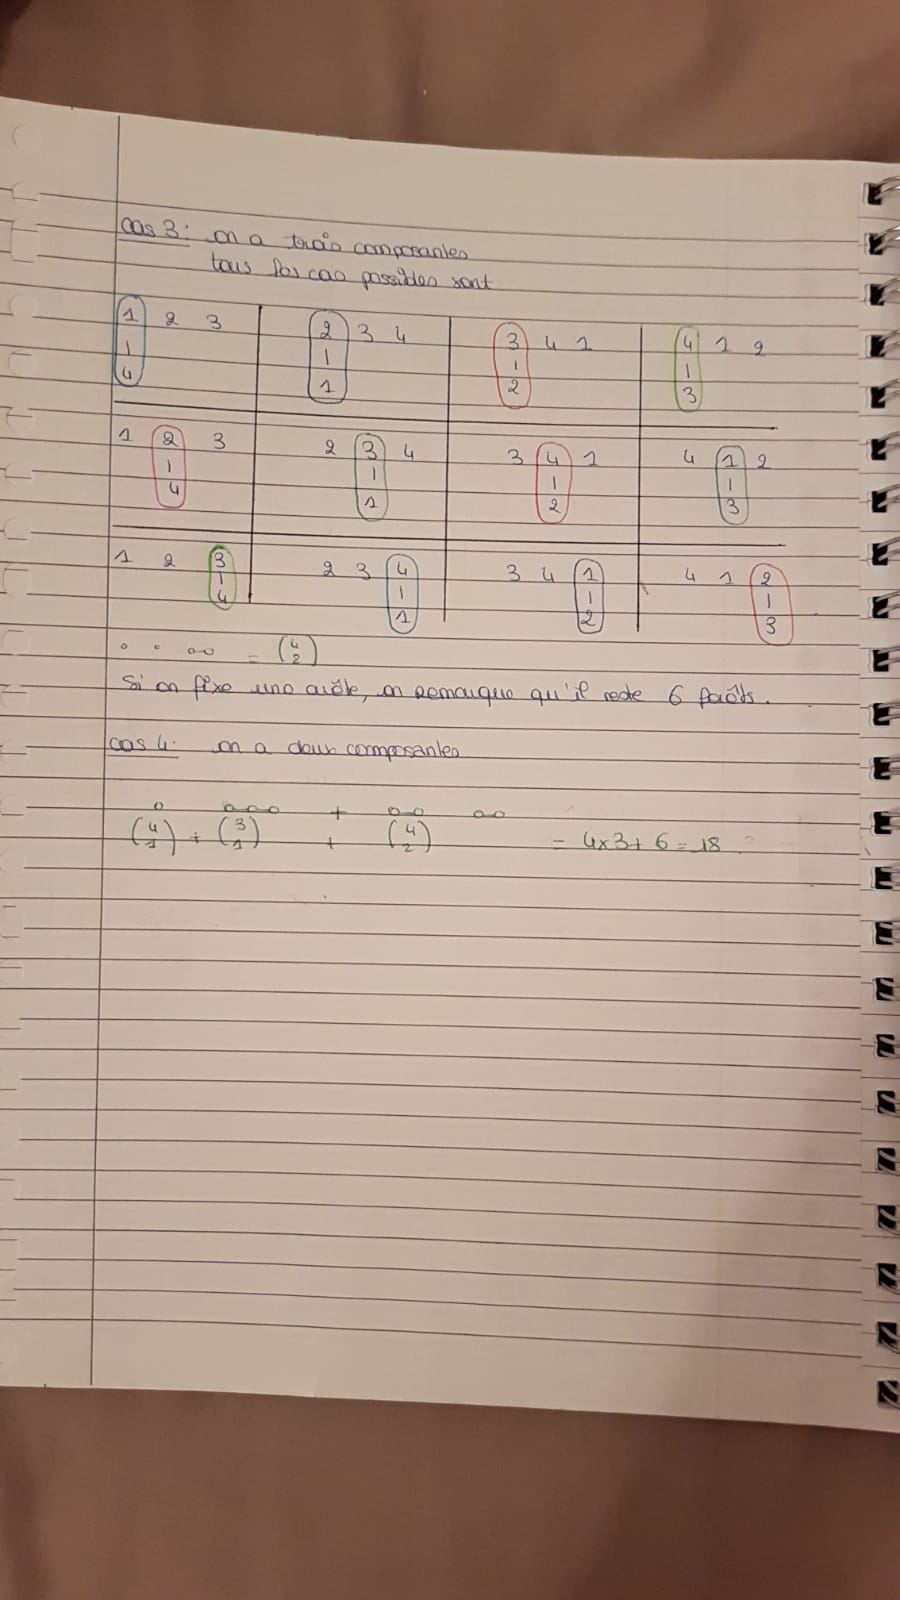 cas 3: on a trois composantes
tous les cas possibles sont
1 2 3 | 2 3 4 | 3 4 1 | 4 1 2
4 | 1 | 2 | 3
1 2 3 | 2 3 4 | 3 4 1 | 4 1 2
4 | 1 | 2 | 3
1 2 3 | 2 3 4 | 3 4 1 | 4 1 2
4 | 1 | 2 | 3
= (4 2)
Si on fixe une arête, on remarque qu'il reste 6 forêts.
cas 4: on a deux composantes
+
(4 1) + (3 1) + (4 2) = 4x3+6=18